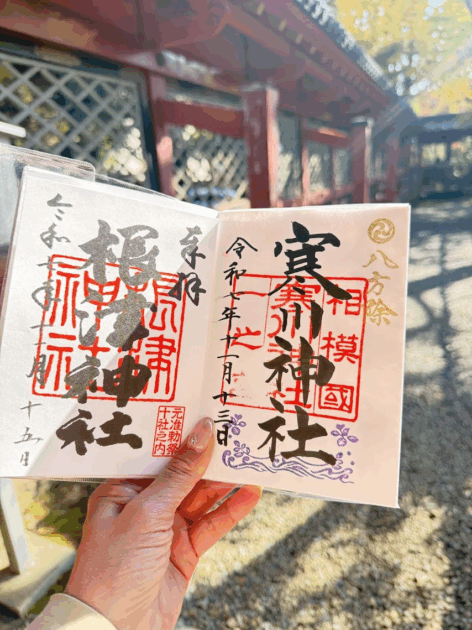 八方除
相模國
一之
寒川神社
令和七年十一月十三日
奉拝
根津神社
根津神社
元准勅祭
十社之内
令和七年十一月十五日